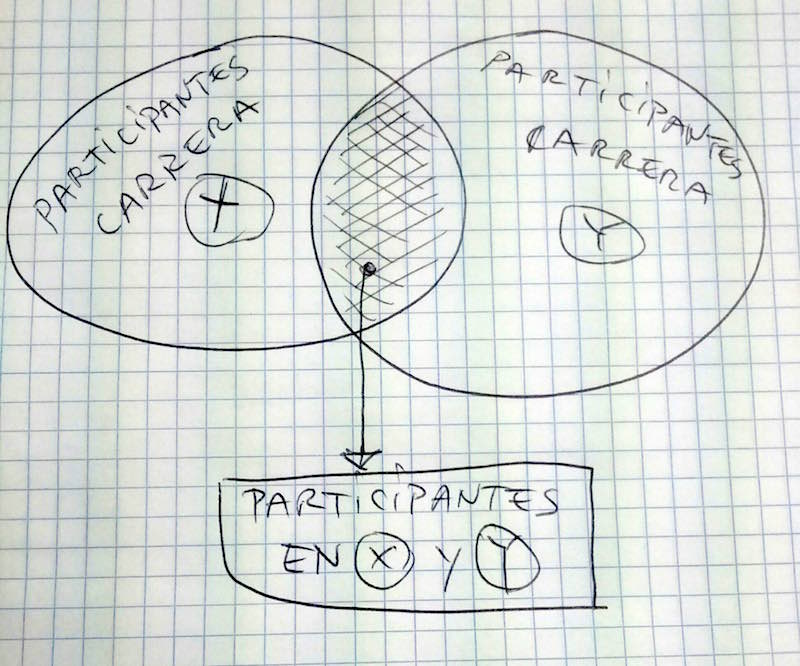 PARTICIPANTES
CARRERA
X
PARTICIPANTES
CARRERA
Y
PARTICIPANTES
EN X Y Y